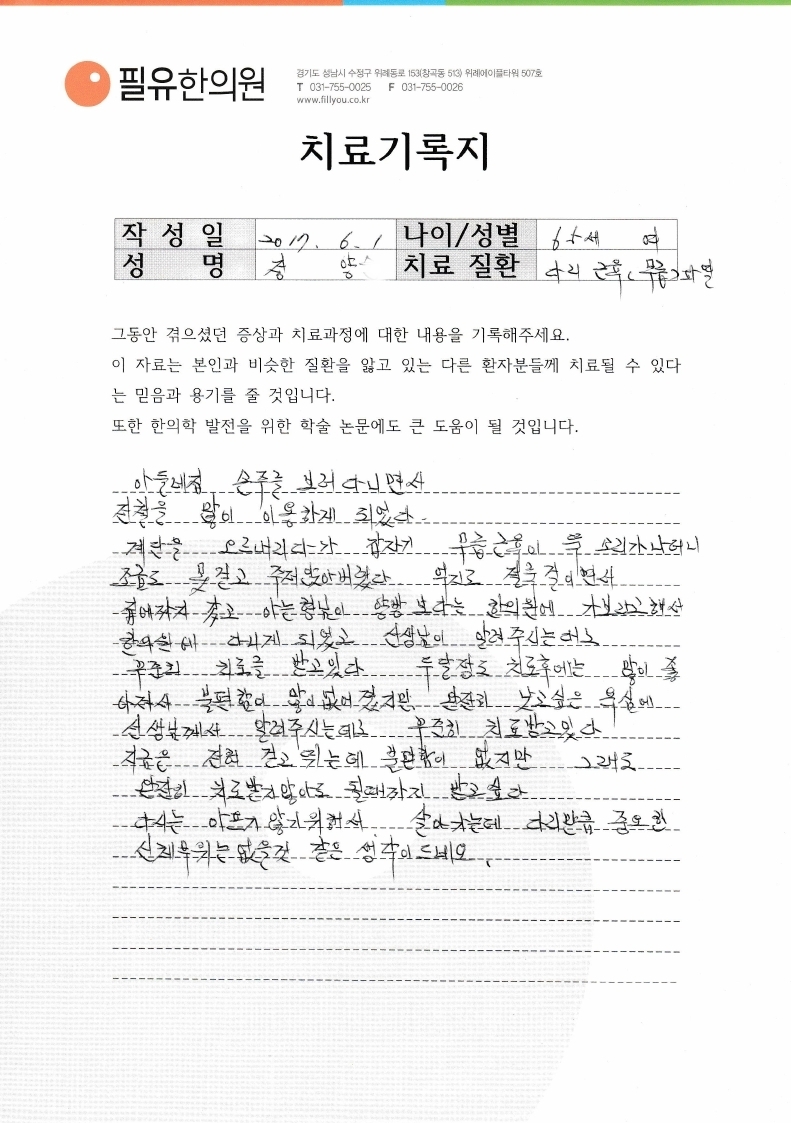 필유한의원
경기도 성남시 수정구 위례동로 153(창곡동 513) 위례에이플타워 507호
T 031-755-0025 F 031-755-0026
www.fillyou.co.kr
치료기록지
작 성 일 2017. 6. 1 나이/성별 65세 여
성 명 치료 질환 다리 근육(무릎)파열
그동안 겪으셨던 증상과 치료과정에 대한 내용을 기록해주세요.
이 자료는 본인과 비슷한 질환을 앓고 있는 다른 환자분들께 치료될 수 있다
는 믿음과 용기를 줄 것입니다.
또한 한의학 발전을 위한 학술 논문에도 큰 도움이 될 것입니다.
아들네집 손주를 보러 다니면서
전철을 많이 이용하게 되었다.
계단을 오르내리다가 갑자기 무릎근육이 뚝 소리가나더니
조금도 못걷고 주저앉아버렸다 억지로 절룩절이면서
집에까지 갔고 아는형님이 양방보다는 한의원에 가보라고해서
한의원에 다니게 되었고 선생님이 알려주시는데로
꾸준히 치료를 받고있다 두달정도 치료후에는 많이 좋
아져서 불편함이 많이없어졌지만 완전히 낫고싶은 욕심에
선생님께서 알려주시는데로 꾸준히 치료받고있다
지금은 전혀 걷고 뛰는데 불편함이 없지만 그래도
완전히 치료받지않아도 될때까지 받고싶다
다시는 아프지않기위해서 살아가는데 다리만큼 중요한
신체부위는없을것 같은 생각이드네요.